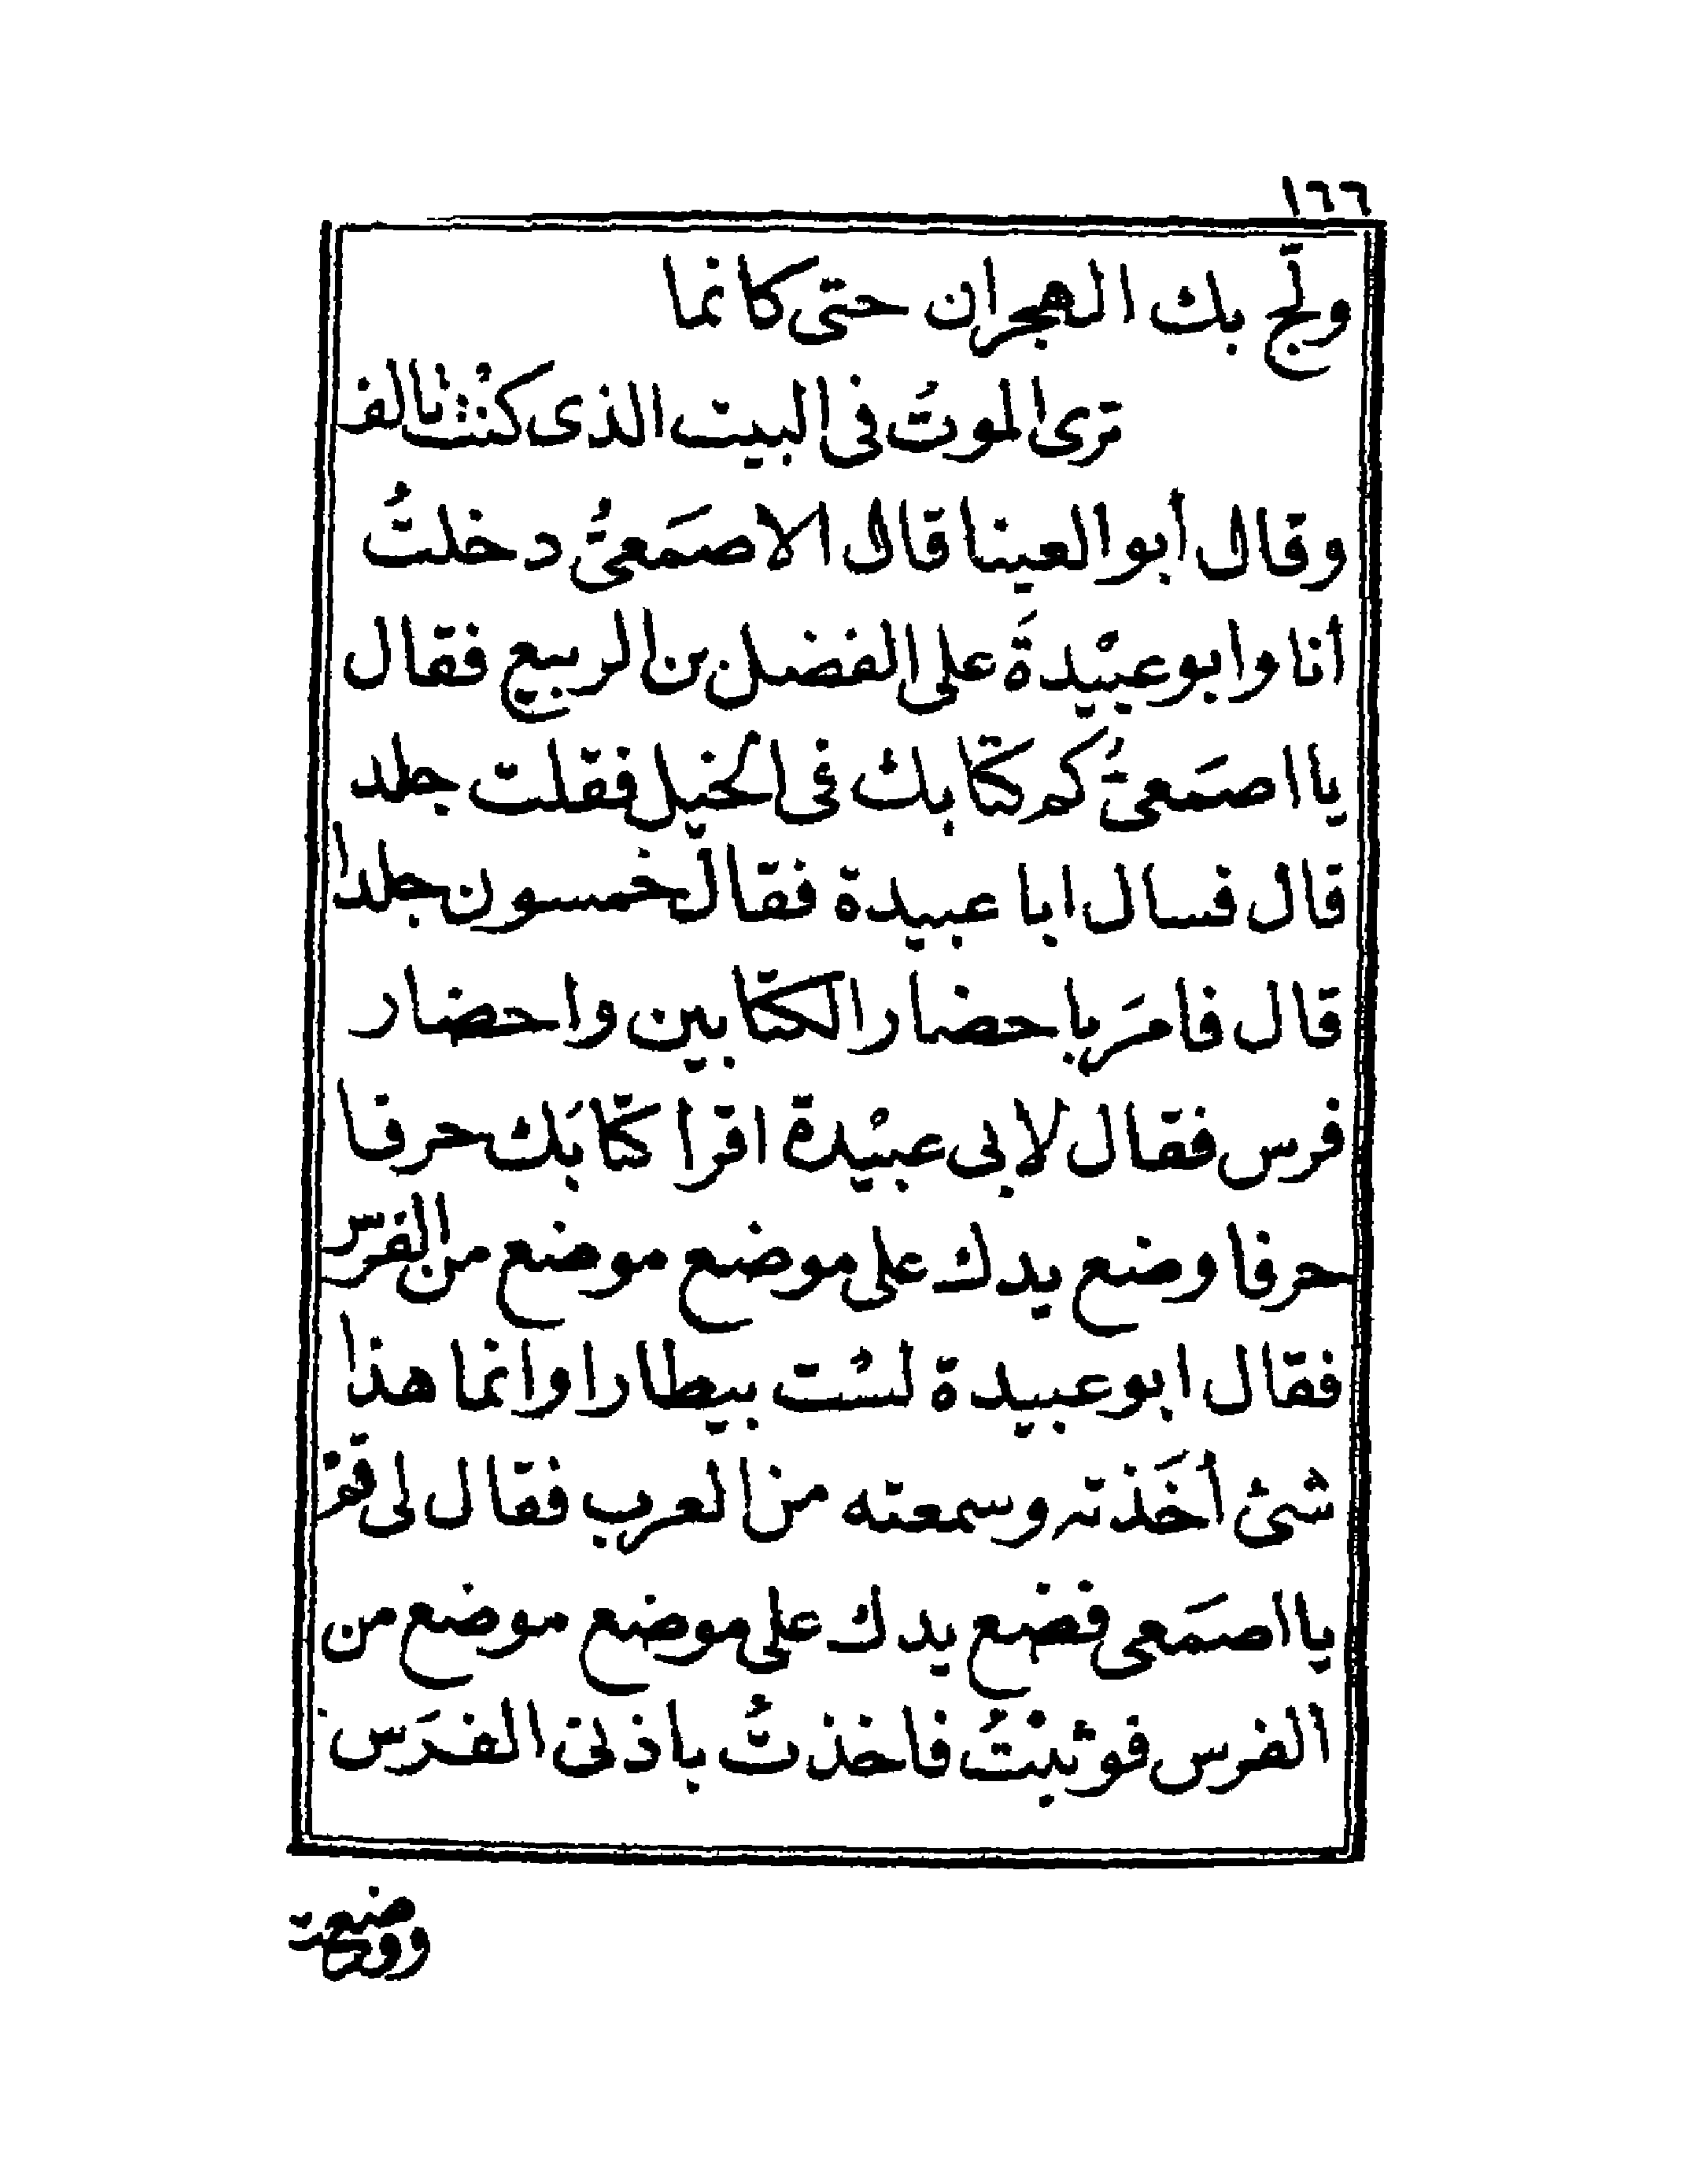 ١٦٦
ولَّج بك الهجران حتى كانما
ترى الموتُ فى البيت الذى كنْتَ تالف
وقال أبو العينا قال الاصمَعىُّ دخلتُ
أنا وابو عبيْدةَ على الفضل بن الربيع فقال
يا اصمَعىُّ كم كتابك فى الخيل فقلت جلد
قال فسال ابا عبيدة فقال خمسون جلدا
قال فامَر باحضار الكتابين واحضار
فرس فقال لابى عبيْدة اقرا كتابَك حرفا
حرفا وضع يدك على موضع موضع من الفرس
فقال ابو عبيدة لسْت بيطارا وانما هذا
شئ أخَذته وسمعته من العرب فقال لى قم
يا اصمَعى فضع يدك على موضع موضع من
الفرس فوثبْتُ فاخذتُ باذنى الفرَس
ووضعت